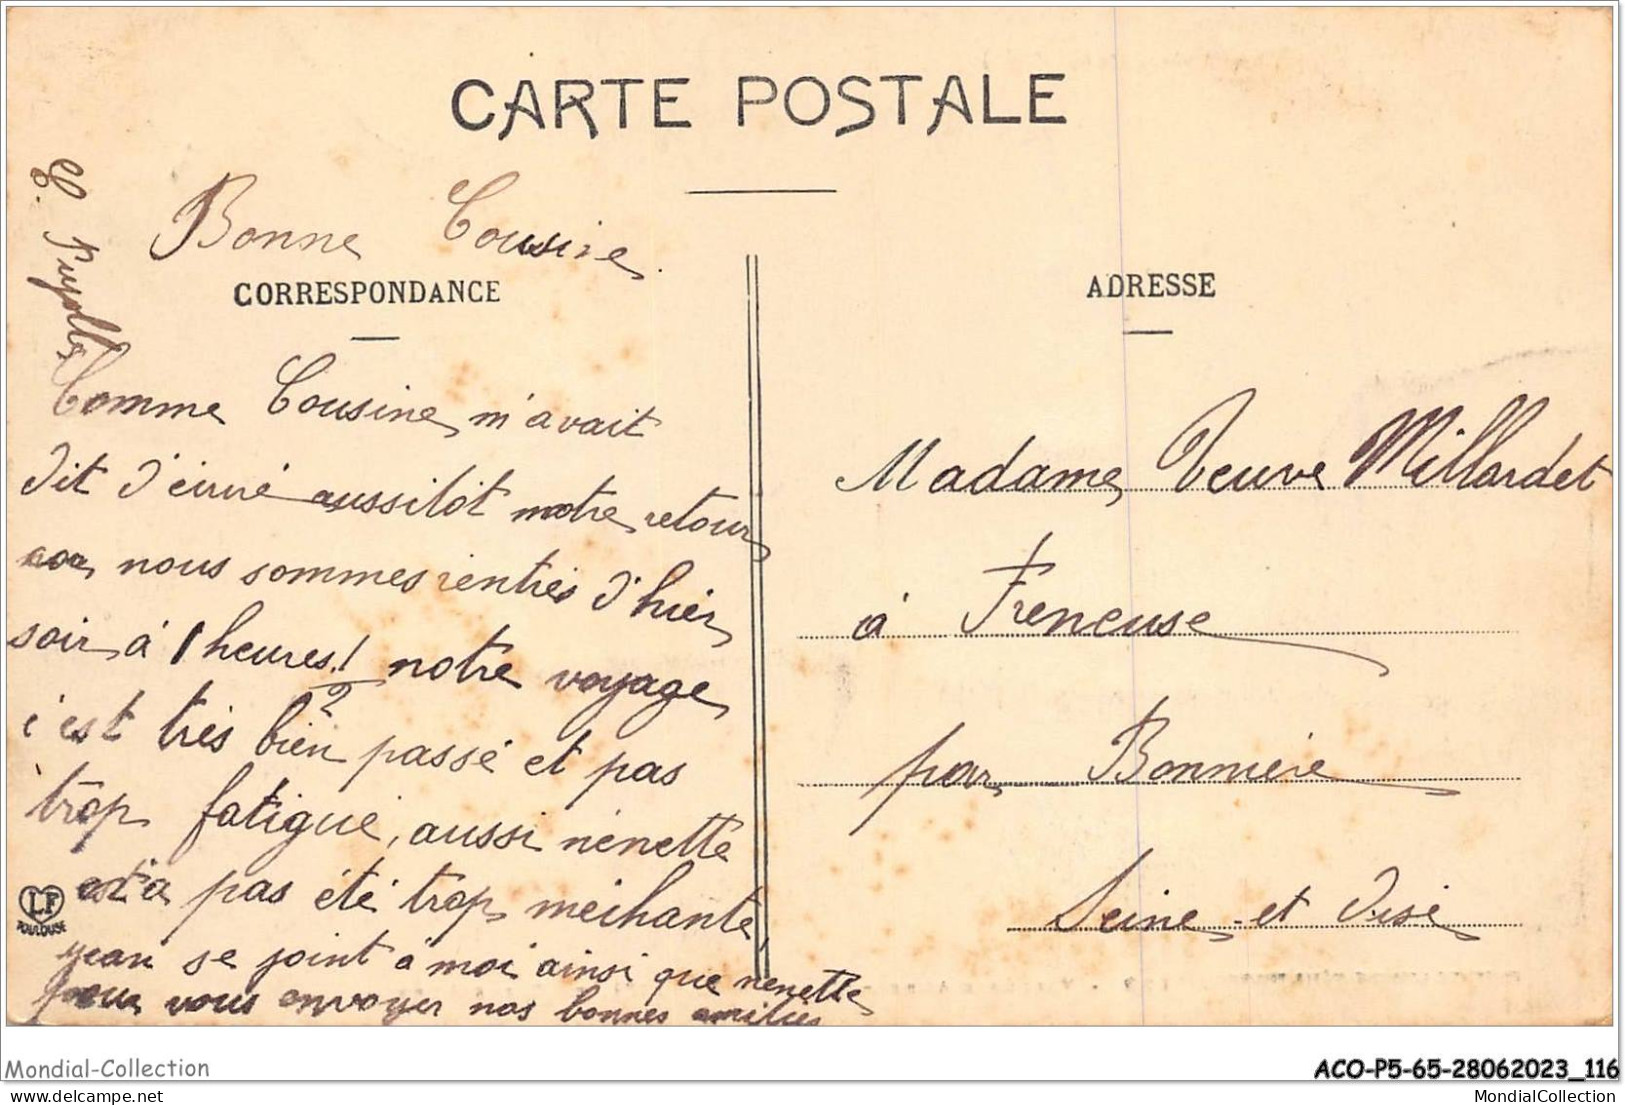 CARTE POSTALE
Bonne Cousine
CORRESPONDANCE
ADRESSE
Comme Cousine m'avait
dit d'éciré aussitôt notre retour
nous sommes rentrés d'hier
soir à 1 heures ½ notre voyage
c'est très bien passé et pas
trop fatigué, aussi nénette
est a pas été trop méchante
jean se joint à moi ainsi que nenette
pour vous envoyer nos bonnes amitiés
Madame Veuve Millardet
à Freneuse
par Bonnière
Seine et Oise
LF
TOULOUSE
Mondial-Collection
ACO-P5-65-28062023_116
Mondial-Collection.com
MondialCollection